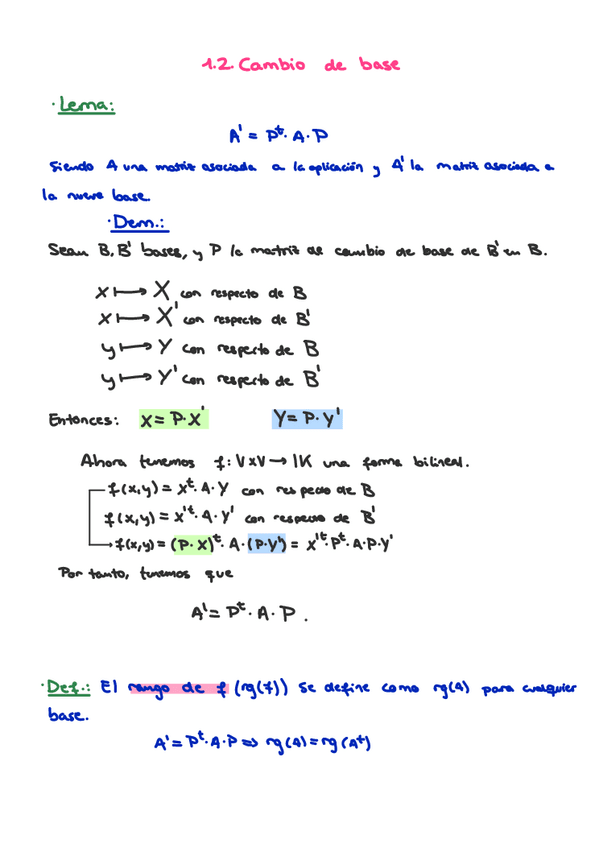 1.2. Cambio de base
· Lema:
A' = Pᵗ · A · P
Siendo A una matriz asociada a la aplicación y A' la matriz asociada a
la nueva base.
· Dem.:
Sean B, B' bases, y P la matriz de cambio de base de B' en B.
x ⟼ X con respecto de B
x ⟼ X' con respecto de B'
y ⟼ Y con respecto de B
y ⟼ Y' con respecto de B'
Entonces: X = P · X' Y = P · Y'
Ahora tenemos f: V x V → IK una forma bilineal.
f(x,y) = Xᵗ · A · Y con respecto de B
f(x,y) = X'ᵗ · A · Y' con respecto de B'
f(x,y) = (P · X)ᵗ · A · (P · Y') = X'ᵗ · Pᵗ · A · P · Y'
Por tanto, tenemos que
A' = Pᵗ · A · P .
· Def.: El rango de f (rg(f)) se define como rg(A) para cualquier
base.
A' = Pᵗ · A · P ⇒ rg(A) = rg(Aᵗ)